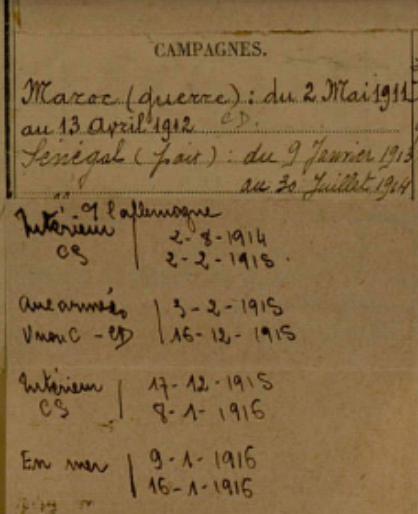 CAMPAGNES.
Maroc (guerre) : du 2 Mai 1911
au 13 Avril 1912 CD.
Sénégal (paix) : du 9 Janvier 1913
au 30 Juillet 1914
l'allemagne
Intérieur 2-8-1914
CS 2-2-1915.
Aux armées 3-2-1915
C - CD 16-12-1915
Intérieur 17-12-1915
CS 8-1-1916
En mer 9-1-1916
16-1-1916